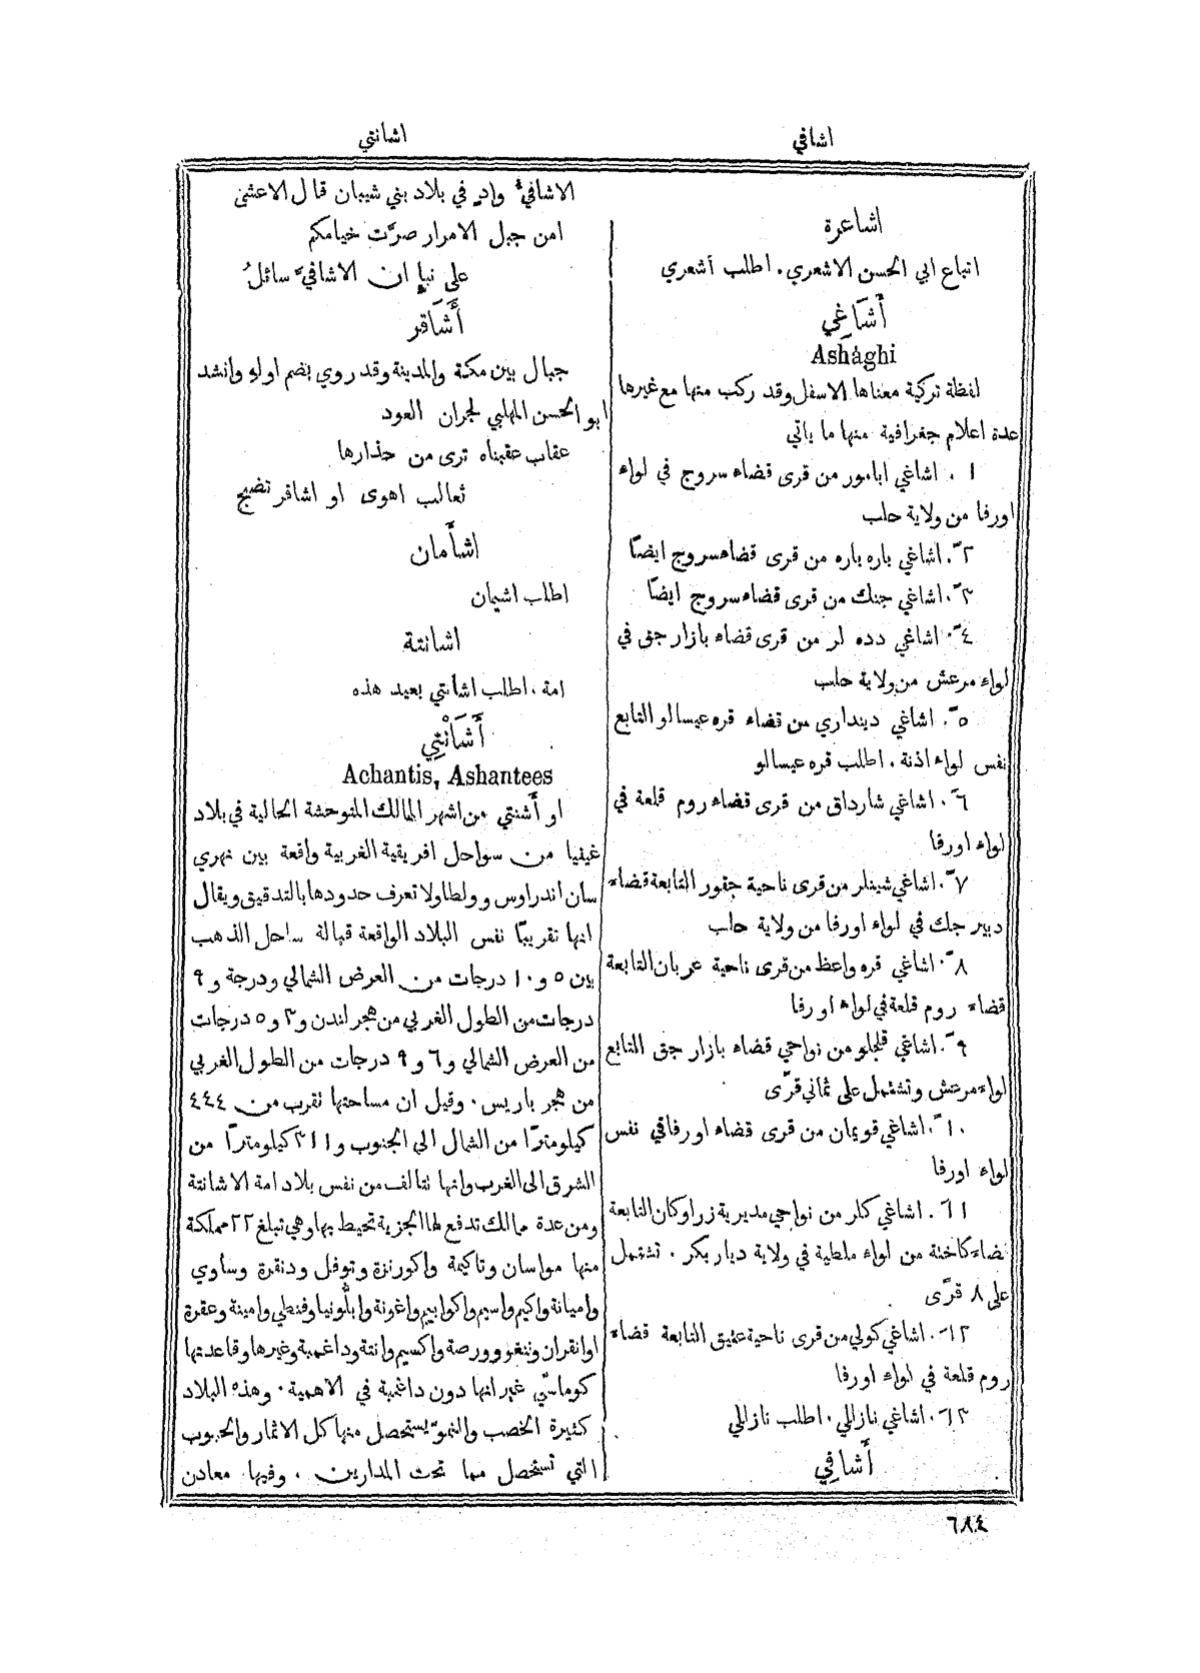 اشافي
اشانتي
اشاعرة
اتباع ابي الحسن الاشعري. اطلب أشعري
أَشَاغِي
Ashághi
لفظة تركية معناها الاسفل وقد ركب منها مع غيرها
عدة اعلام جغرافية منها ما ياتي
١ . اشاغي ابامور من قرى قضاء سروج في لواء
اورفا من ولاية حلب
٢ً. اشاغي باره باره من قرى قضاء سروج ايضًا
٣ً. اشاغي جنك من قرى قضاء سروج ايضًا
٤ً. اشاغي دده لر من قرى قضاء بازار جق في
لواء مرعش من ولاية حلب
٥ً. اشاغي دينداري من قضاء قره عيسالو التابع
نفس لواء اذنة . اطلب قره عيسالو
٦ً. اشاغي شارداق من قرى قضاء روم قلعة في
لواء اورفا
٧ً. اشاغي شينلر من قرى ناحية جقور التابعة قضاء
دبير جك في لواء اورفا من ولاية حلب
٨ً. اشاغي قره واعظ من قرى ناحية عربان التابعة
قضاء روم قلعة في لواء اورفا
٩ً. اشاغي قلجلو من نواحي قضاء بازار جق التابع
لواء مرعش وتشتمل على ثماني قرًى
١٠ً. اشاغي قويمان من قرى قضاء اورفا في نفس
لواء اورفا
١١ً. اشاغي كلر من نواحي مديرية زراوكان التابعة
قضاء كاختة من لواء ملطية في ولاية ديار بكر . تشتمل
على ٨ قرًى
١٢ً. اشاغي كولي من قرى ناحية عميق التابعة قضاء
روم قلعة في لواء اورفا
١٣ً. اشاغي نازللي . اطلب نازللي
أَشافِي
الاشافيُّ وادٍ في بلاد بني شيبان قال الاعشى
امن جبل الامرار صرَّت خيامكم
على نبإٍ ان الاشافيَّ سائلُ
أَشَاقر
جبال بين مكة والمدينة وقد روي بضم اولهِ وانشد
ابو الحسن المهلبي لجران العود
عقاب عقبناه ترى من حذارها
ثعالب اهوى او اشاقر تضبح
اشأَمان
اطلب اشيمان
اشانتة
امة . اطلب اشانتي بعيد هذه
أَشَانْتِي
Achantis, Ashantees
او أَشنتي من اشهر الممالك المتوحشة الحالية في بلاد
غينيا من سواحل افريقية الغربية واقعة بين نهري
سان اندراوس وولطا ولا تعرف حدودها بالتدقيق ويقال
انها تقريبًا نفس البلاد الواقعة قبالة ساحل الذهب
بين ٥ و١٠ درجات من العرض الشمالي ودرجة و٩
درجات من الطول الغربي من هجر لندن و٣ و٥ درجات
من العرض الشمالي و٦ و٩ درجات من الطول الغربي
من هجر باريس . وقيل ان مساحتها تقرب من ٤٤٤
كيلومترًا من الشمال الى الجنوب و٣١١ كيلومترًا من
الشرق الى الغرب وانها تتالف من نفس بلاد امة الاشانتة
ومن عدة ممالك تدفع لها الجزية تحيط بها وهي تبلغ ٢٢ مملكة
منها مواسان وتاكيمة واكورنزة وتوفل ودنقرة وساوي
واميانة واكيم واسيم واكوابيم واغونة وابلُّونيا وفنطي وامينة وعقرة
اوانقران وننغو وورصة واكسيم وانتة وداغمبة وغيرها وقاعدتها
كوماسّي غير انها دون داغمبة في الاهمية . وهذه البلاد
كثيرة الخصب والنموّ يستحصل منها كل الاثمار والحبوب
التي تستحصل مما تحت المدارين . وفيها معادن
٦٨٤